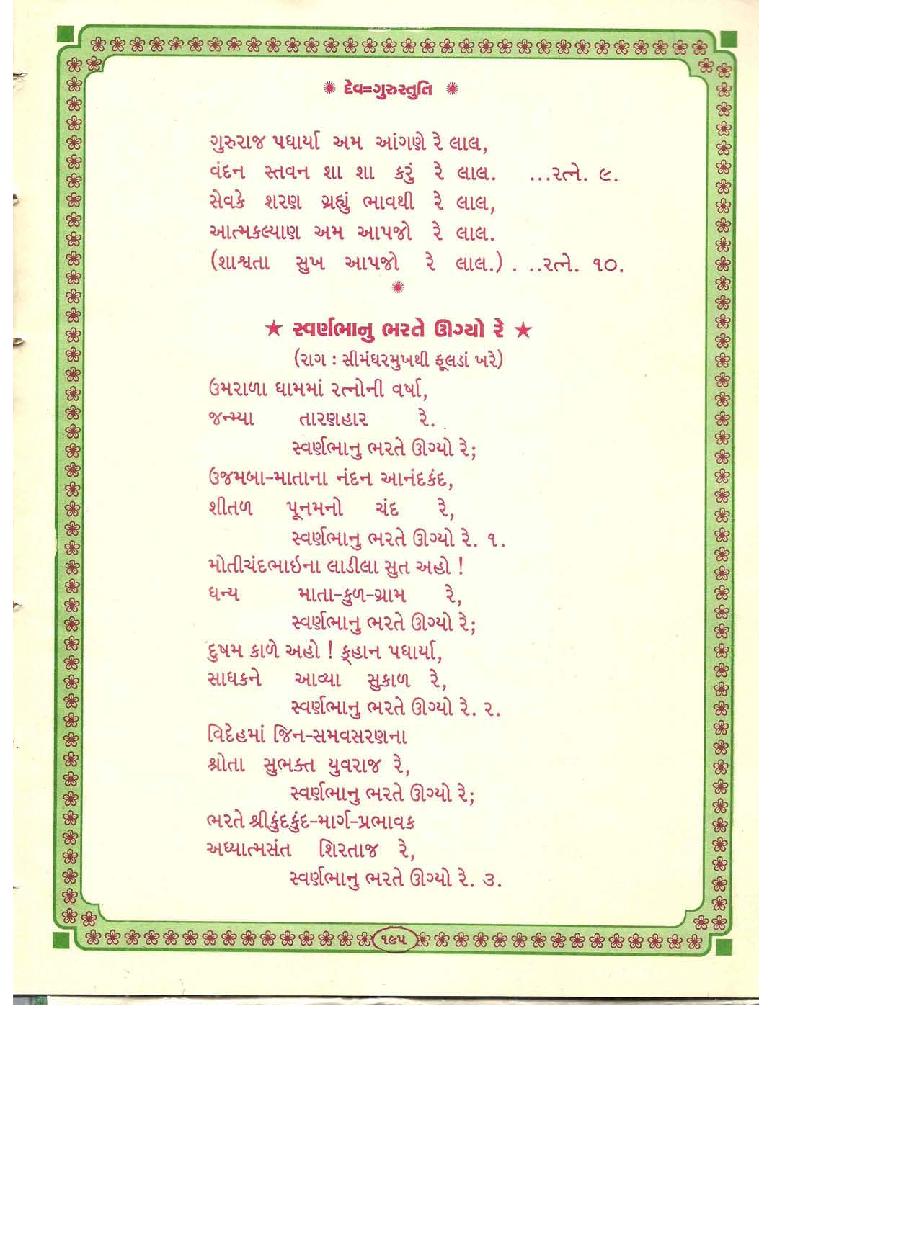 ✺ દેવ=ગુરુસ્તુતિ ✺
ગુરુરાજ પધાર્યા અમ આંગણે રે લાલ,
વંદન સ્તવન શા શા કરું રે લાલ. ...રત્ને. ૯.
સેવકે શરણ ગ્રહ્યું ભાવથી રે લાલ,
આત્મકલ્યાણ અમ આપજો રે લાલ.
(શાશ્વતા સુખ આપજો રે લાલ.) . ..રત્ને. ૧૦.
✺
★ સ્વર્ણભાનુ ભરતે ઊગ્યો રે ★
(રાગ : સીમંધરમુખથી ફૂલડાં ખરે)
ઉમરાળા ધામમાં રત્નોની વર્ષા,
જન્મ્યા તારણહાર રે.
સ્વર્ણભાનુ ભરતે ઊગ્યો રે;
ઉજમબા-માતાના નંદન આનંદકંદ,
શીતળ પૂનમનો ચંદ રે,
સ્વર્ણભાનુ ભરતે ઊગ્યો રે. ૧.
મોતીચંદભાઇના લાડીલા સુત અહો !
ધન્ય માતા-કુળ-ગ્રામ રે,
સ્વર્ણભાનુ ભરતે ઊગ્યો રે;
દુષમ કાળે અહો ! કૂહાન પધાર્યા,
સાધકને આવ્યા સુકાળ રે,
સ્વર્ણભાનુ ભરતે ઊગ્યો રે. ૨.
વિદેહમાં જિન-સમવસરણના
શ્રોતા સુભક્ત યુવરાજ રે,
સ્વર્ણભાનુ ભરતે ઊગ્યો રે;
ભરતે શ્રીકુંદકુંદ-માર્ગ-પ્રભાવક
અધ્યાત્મસંત શિરતાજ રે,
સ્વર્ણભાનુ ભરતે ઊગ્યો રે. ૩.
૧૯૫